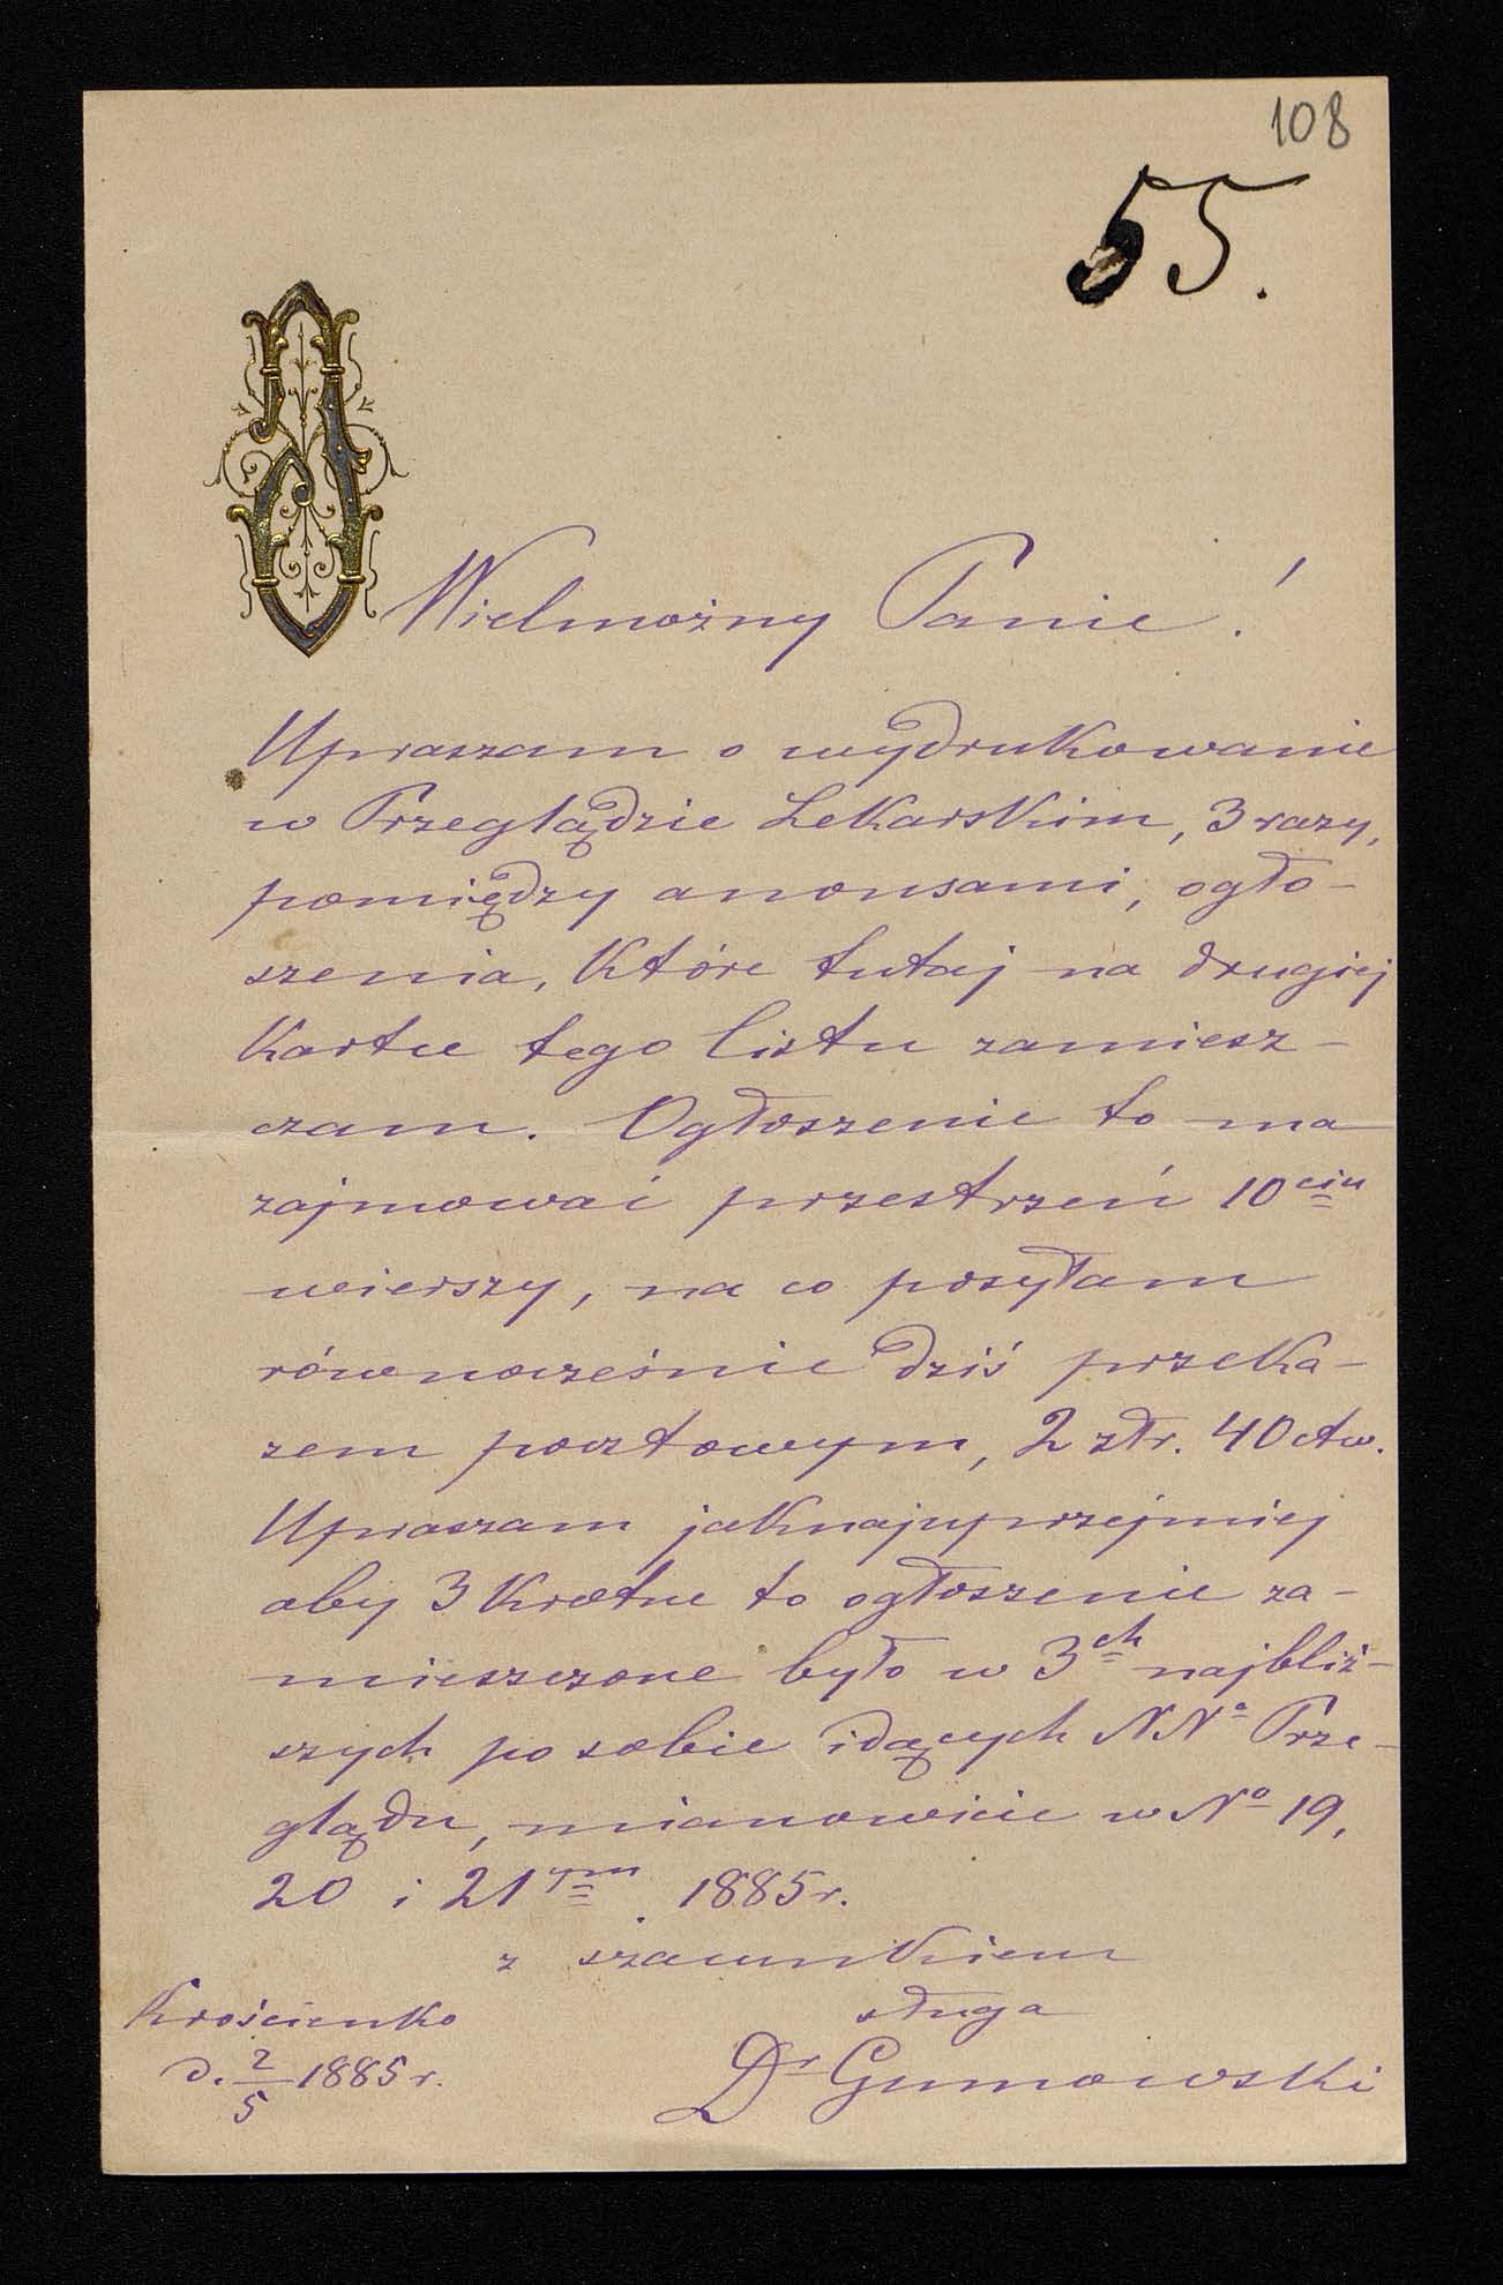 108
55.
Wielmożny Panie!
Upraszam o wydrukowanie
w Przeglądzie Lekarskim, 3 razy,
pomiędzy anonsami, ogło-
szenia, które tutaj na drugiej
kartce tego listu zamiesz-
czam. Ogłoszenie to ma
zajmować przestrzeń 10ciu
wierszy, na co posyłam
równocześnie dziś przeka-
zem pocztowym, 2 złr. 40 ctw.
Upraszam jaknajuprzejmiej
aby 3 krotne to ogłoszenie za-
mieszczone było w 3ch najbliż-
szych po sobie idących NNo Prze-
glądu, mianowicie w No 19,
20 i 21ym. 1885 r.
z szacunkiem
sługa
Krościenko
d. 2/5 1885 r.
Dr Gumowski